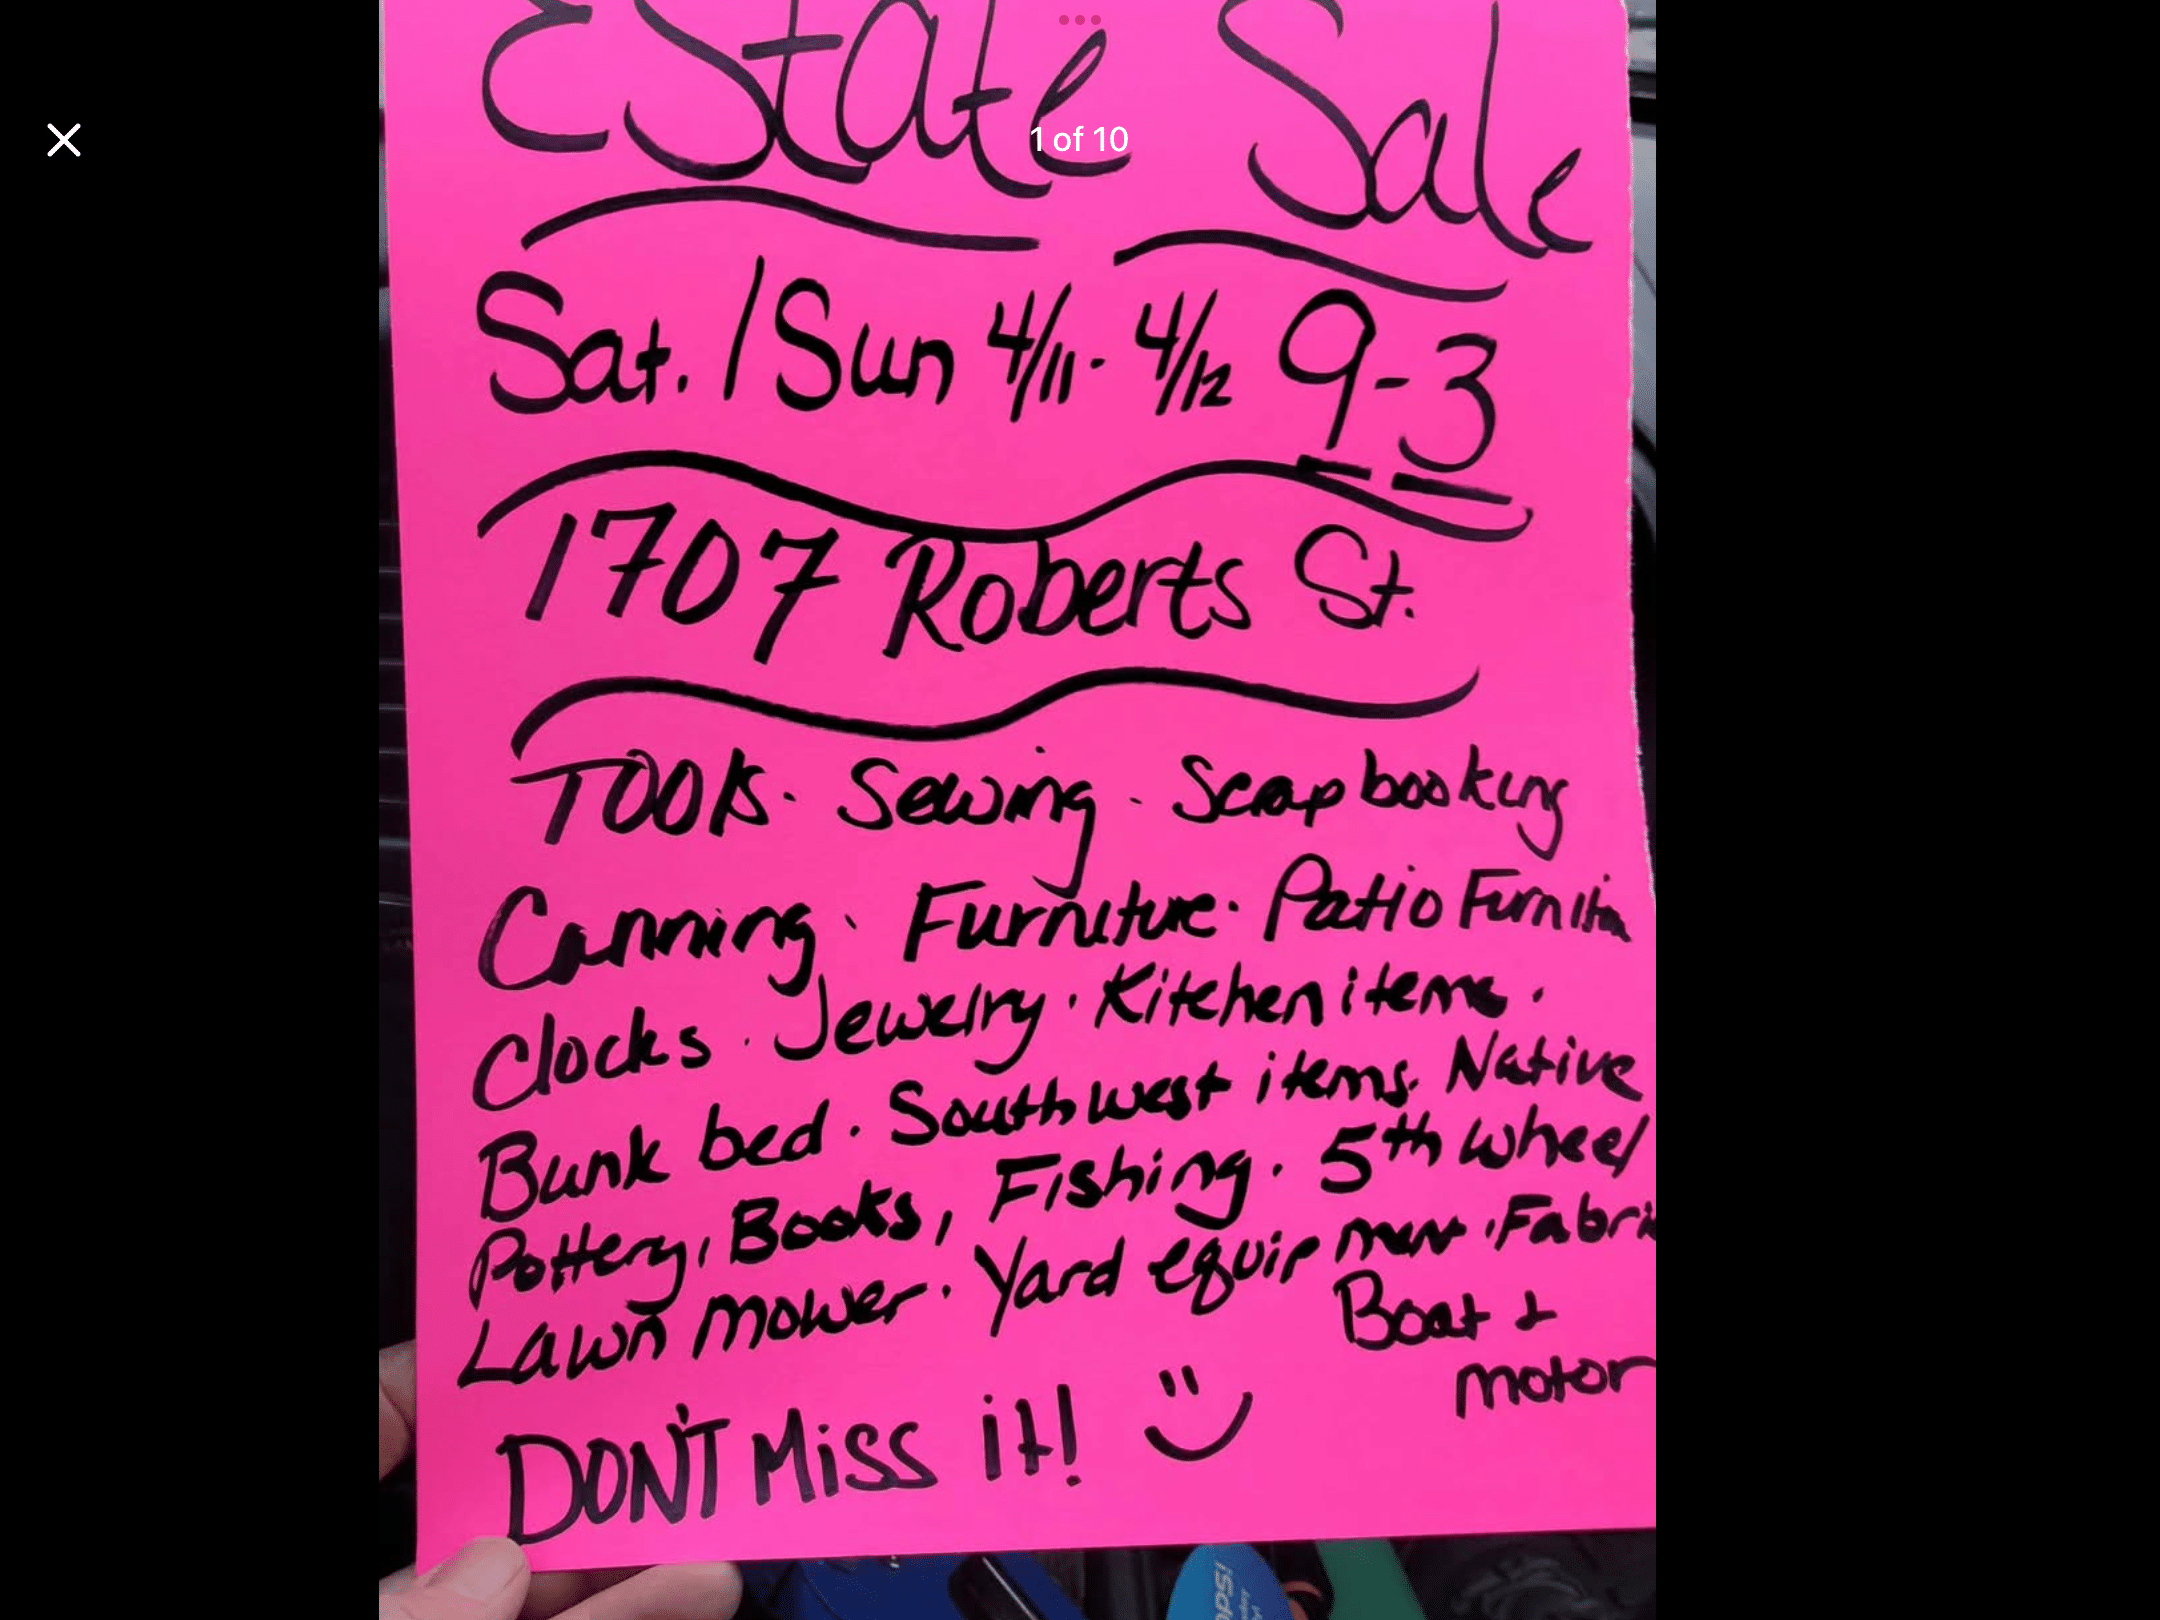 1 of 10
EState Sale
Sat. / Sun 4/11 - 4/12 9-3
1707 Roberts St.
Tools · Sewing · Scrapbooking
Canning · Furniture · Patio Furniture
Clocks · Jewelry · Kitchen items ·
Bunk bed · Southwest items · Native
Pottery, Books, Fishing · 5th wheel
Lawn mower · Yard equipment · Fabri
Boat +
motor
DON'T Miss it!